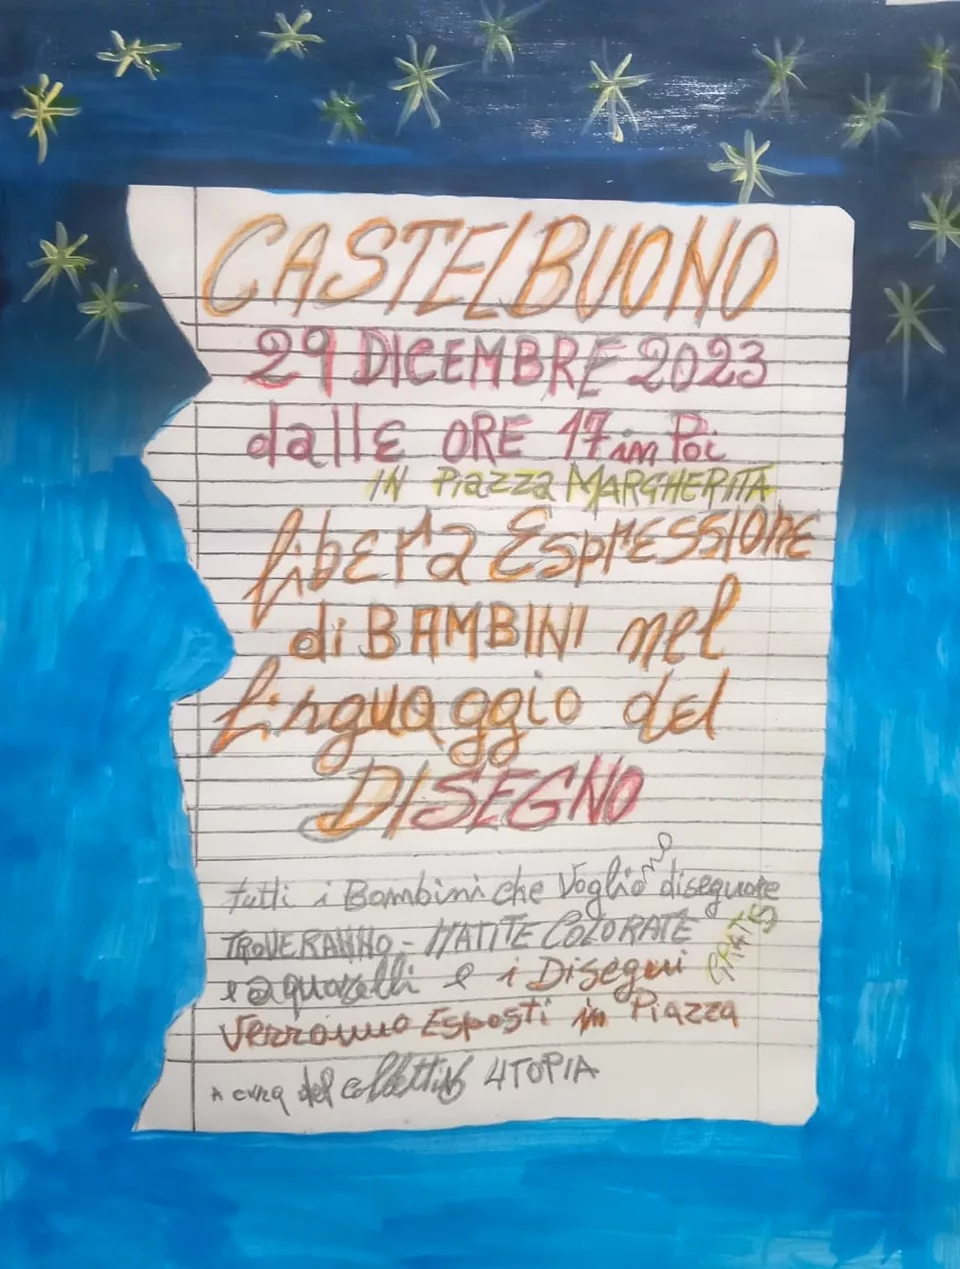 CASTELBUONO
29 DICEMBRE 2023
dalle ORE 17 in Poi
IN Piazza MARGHERITA
libera Espressione
di BAMBINI nel
linguaggio del
DISEGNO
tutti i Bambini che Vogliono disegnare
TROVERANNO - MATITE COLORATE GRATIS
e aquarelli e i Disegni
Verranno Esposti in Piazza
A cura del collettivo UTOPIA